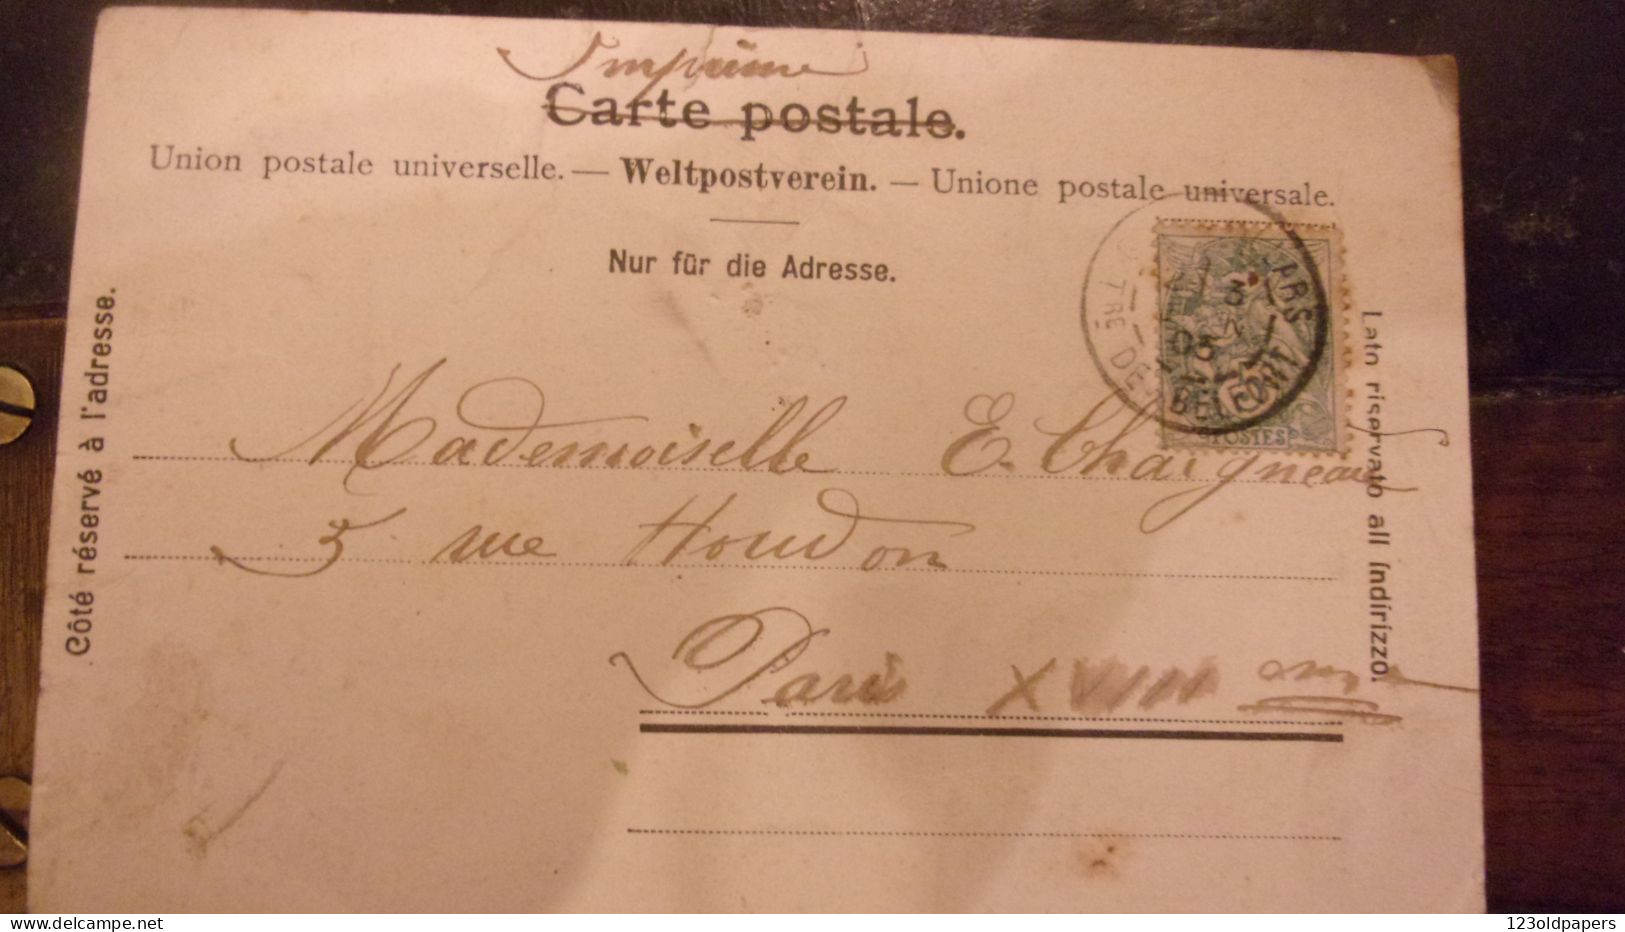 Imprimé
Carte postale.
Union postale universelle. — Weltpostverein. — Unione postale universale.
Nur für die Adresse.
Côté réservé à l'adresse.
Lato riservato all Indirizzo.
TRE DE BELFORT
POSTES
Mademoiselle E. Chargneau
5 rue Houdon
Paris XVIII me
123oldpapers